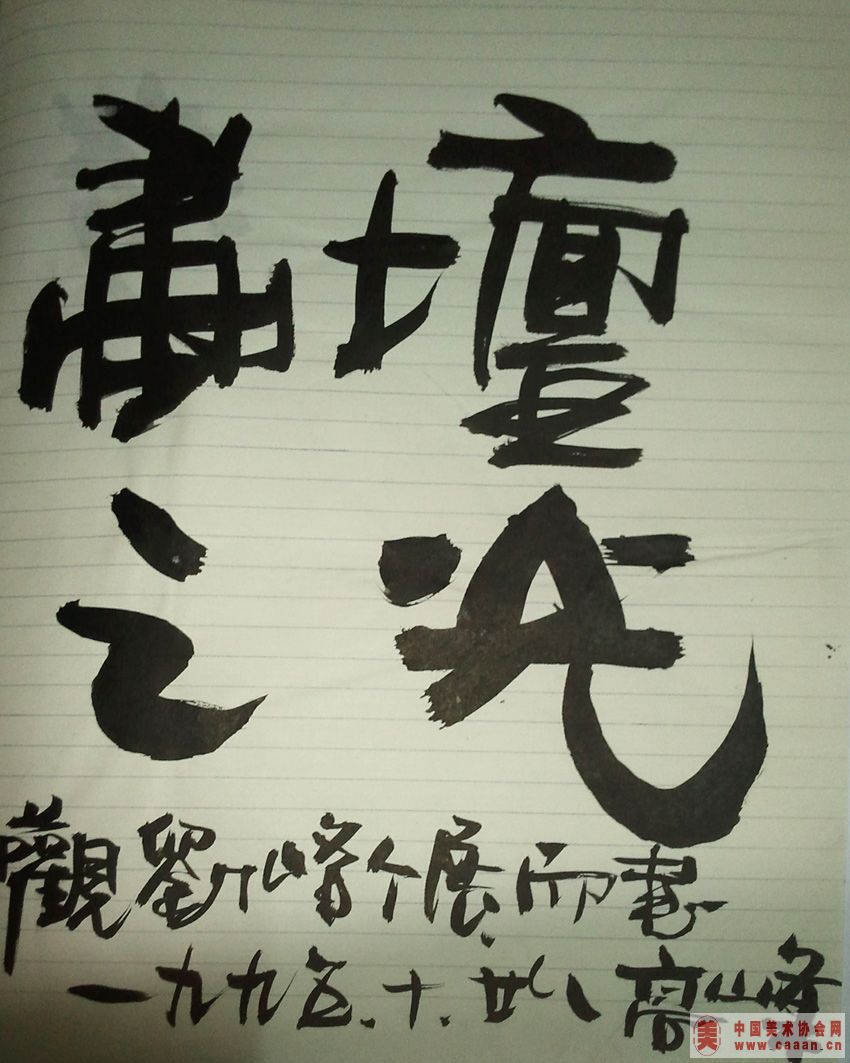 畫壇
之光
觀劉峰个展而書
一九九五.十.廿八高峰
美 中国美术协会网
www.caaan.cn